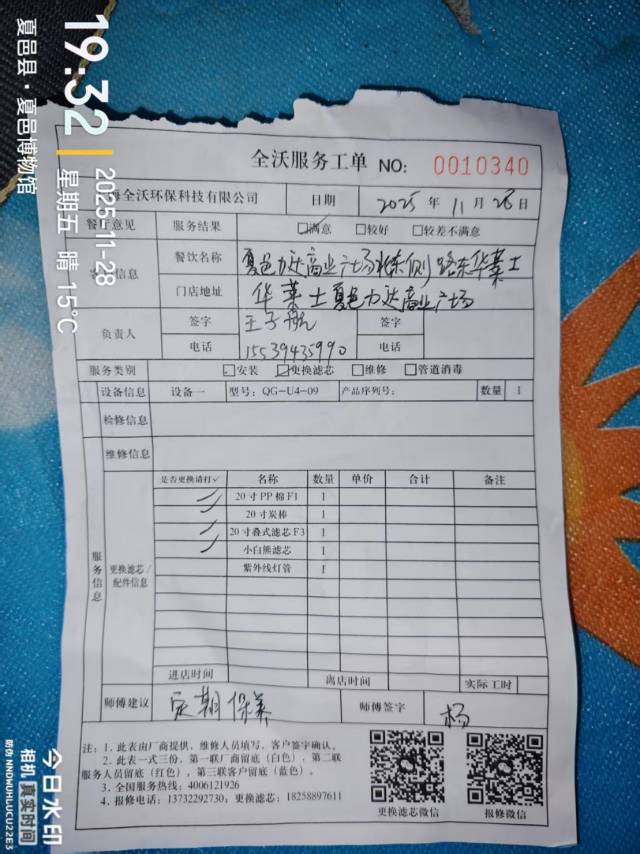 全沃服务工单 NO: 0010340
海全沃环保科技有限公司 日期 2025 年 11 月 28 日
餐厅意见 服务结果 ☑满意 □较好 □较差不满意
信息 餐饮名称 夏邑力达商业广场 路东华莱士
门店地址 华莱士夏邑力达商业广场
负责人 签字 王子 签字
电话 15539435990 电话
服务类别 □安装 ☑更换滤芯 □维修 □管道消毒
设备信息 设备一 型号: QG-U4-09 产品序列号: 数量 1
检修信息
维修信息
服务信息
更换滤芯/配件信息
是否更换请打√ 名称 数量 单价 合计 备注
20寸PP棉F1 1
20寸炭棒 1
20寸叠式滤芯F3 1
小白熊滤芯 1
紫外线灯管 1
进店时间 离店时间 实际工时
师傅建议 定期保养 师傅签字 杨
注: 1. 此表由厂商提供, 维修人员填写, 客户签字确认。
2. 此表一式三份, 第一联厂商留底 (白色), 第二联
服务人员留底 (红色), 第三联客户留底 (蓝色)。
3. 全国服务热线: 4006121926
4. 报修电话: 13732292730; 更换滤芯: 18258897611
更换滤芯微信 报修微信
19:32
2025-11-28
星期五 晴 15℃
夏邑县·夏邑博物馆
今日水印
相机 真实时间
防伪 NNDWUHLUCU22E3